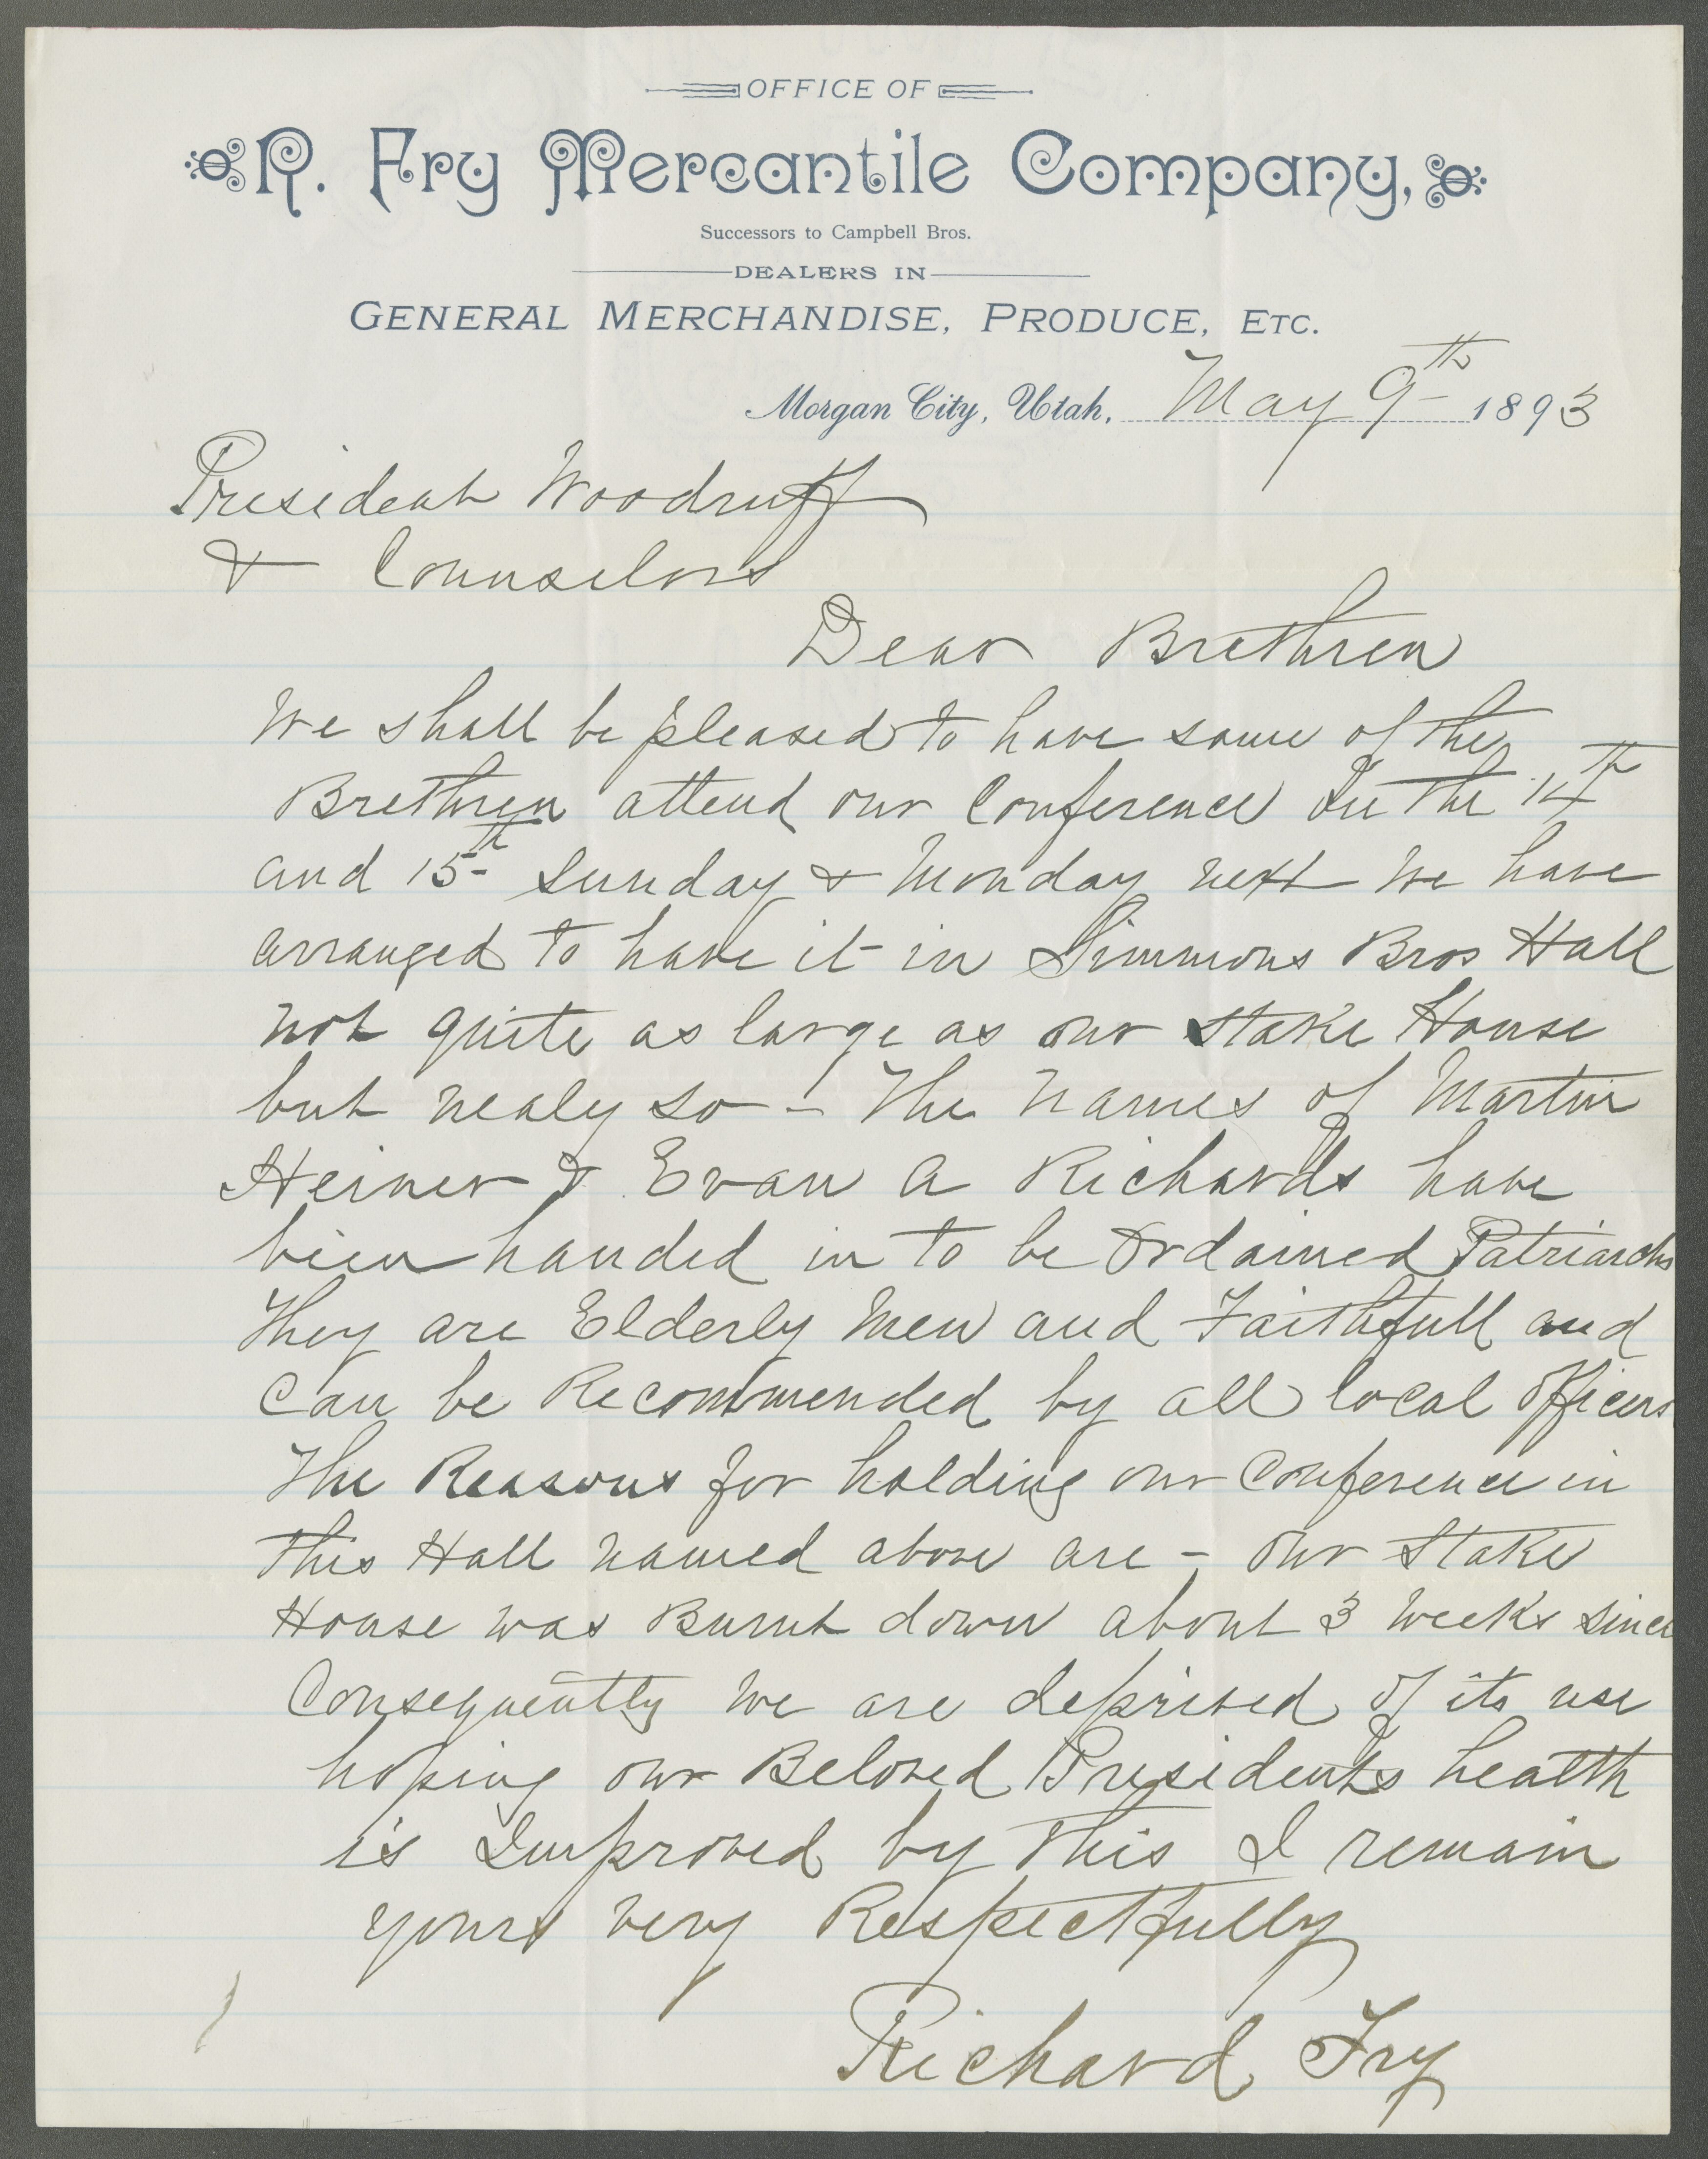 OFFICE OF
R. Fry Mercantile Company,
Successors to Campbell Bros.
DEALERS IN
GENERAL MERCHANDISE, PRODUCE, ETC.
Morgan City, Utah, May 9th 1893
President Woodruff
& Counselors
Dear Brethren
We shall be pleased to have some of the
Brethren attend our Conference On the 14th
and 15th Sunday & Monday next We have
arranged to have it in Simmons Bros Hall
not quite as large as our Stake House
but nealy so - The Names of Martin
Heiner & Evan A Richards have
bien handed in to be Ordained Patriarchs
They are Elderly Men and Faithfull and
Can be Recommended by all local Officers
The Reasons for holding our Conference in
This Hall named above are - Our Stake
House was Burnt down about 3 Weeks since
Consequently We are deprived of its use
hoping our Beloved Presidents health
is Improved by This I remain
yours very Respectfully
Richard Fry